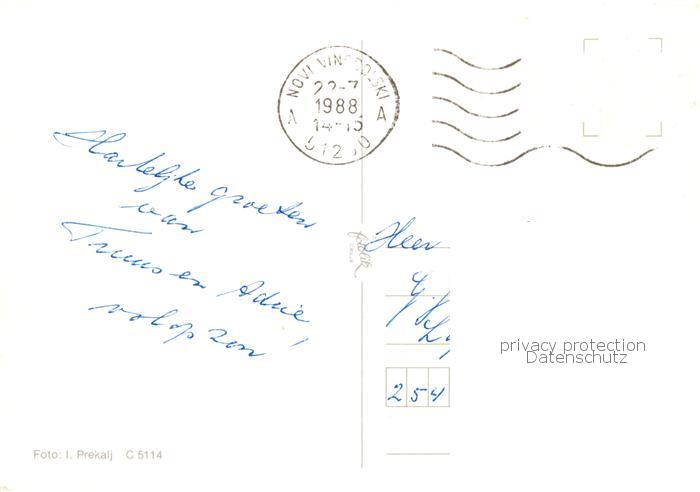 NOVI VINODOLSKI
22-7
1988
14-15
A A
51250
Hartelijke groeten
van
Truus en Adrie,
volop zon
fotolik
CELJE
Heer
254
privacy protection
Datenschutz
Foto: I. Prekalj C 5114